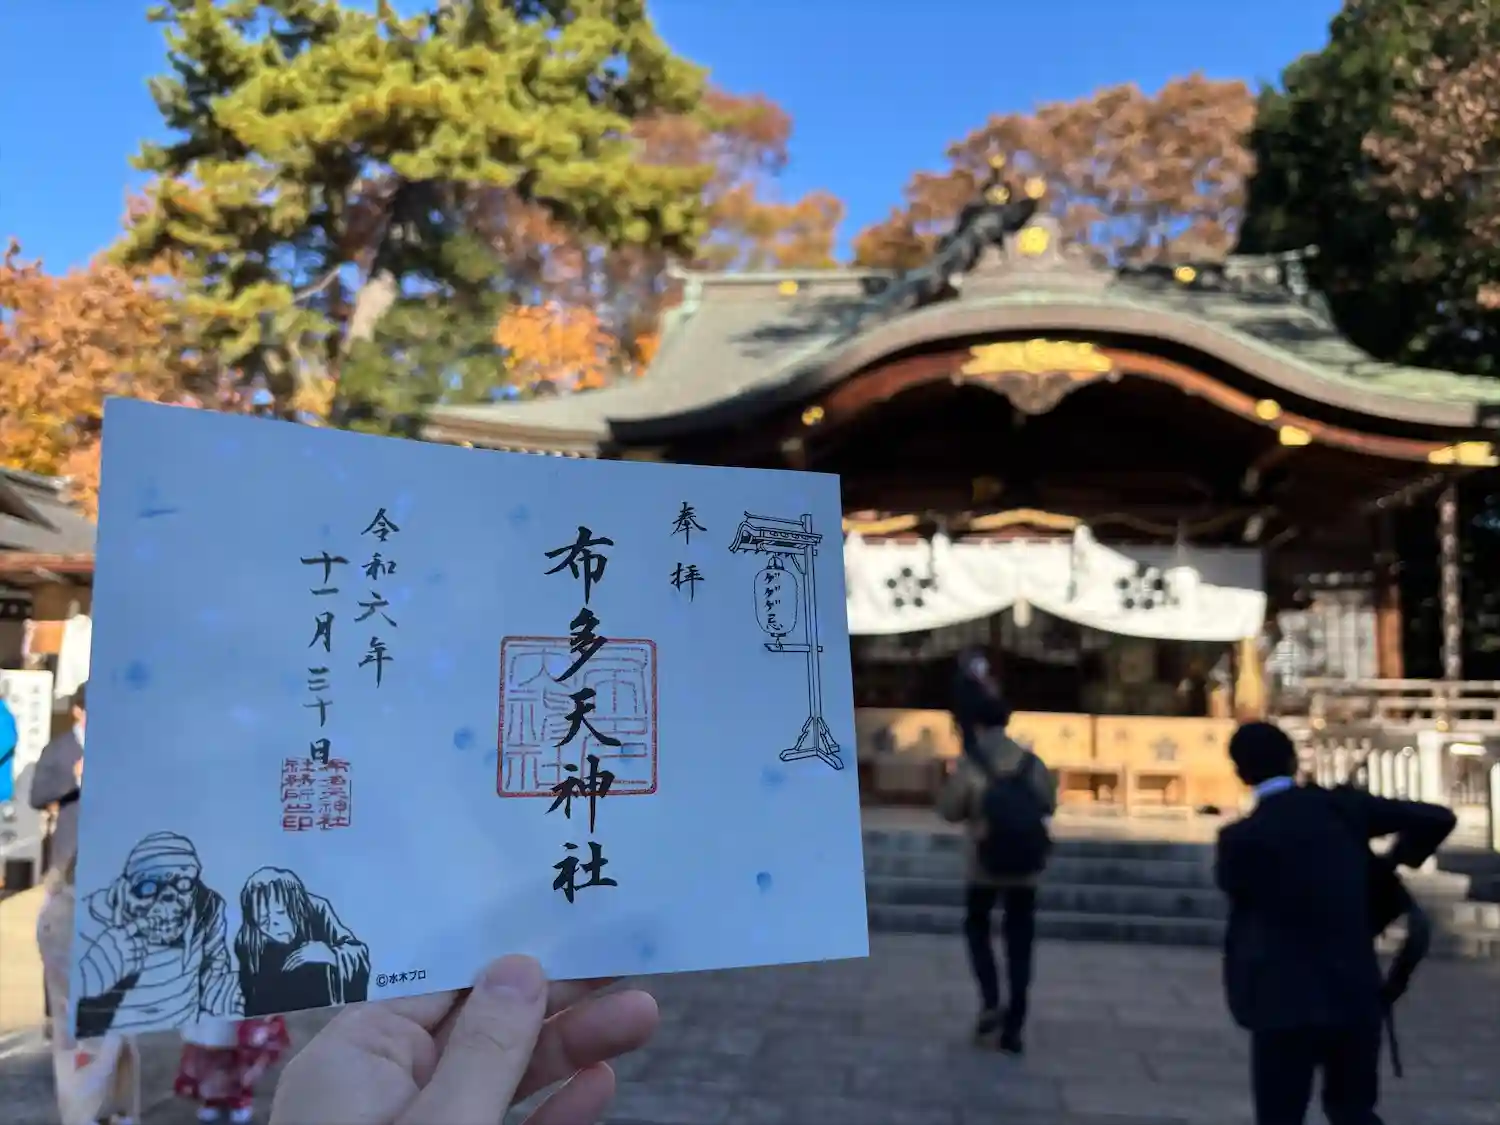 奉拝
ゲゲゲ忌
布多天神社
令和六年
十一月三十日
布多天神社
社務所之印
©水木プロ